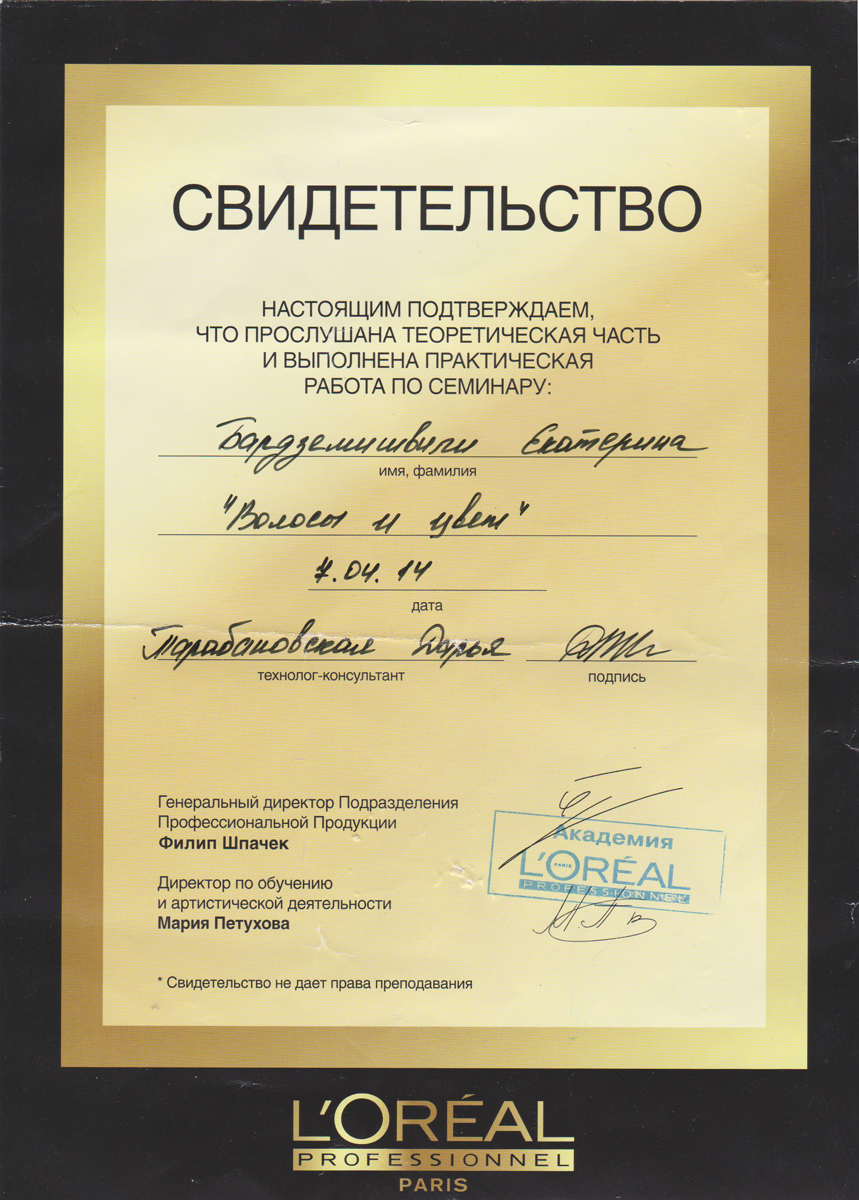 СВИДЕТЕЛЬСТВО
НАСТОЯЩИМ ПОДТВЕРЖДАЕМ,
ЧТО ПРОСЛУШАНА ТЕОРЕТИЧЕСКАЯ ЧАСТЬ
И ВЫПОЛНЕНА ПРАКТИЧЕСКАЯ
РАБОТА ПО СЕМИНАРУ:
Бардземишвили Екатерина
имя, фамилия
"Волосы и цвет"
7.04.14
дата
Тарабановская Дарья
технолог-консультант
подпись
Генеральный директор Подразделения
Профессиональной Продукции
Филип Шпачек
Директор по обучению
и артистической деятельности
Мария Петухова
Академия
L'ORÉAL
PARIS
PROFESSIONNEL
* Свидетельство не дает права преподавания
L'ORÉAL
PROFESSIONNEL
PARIS